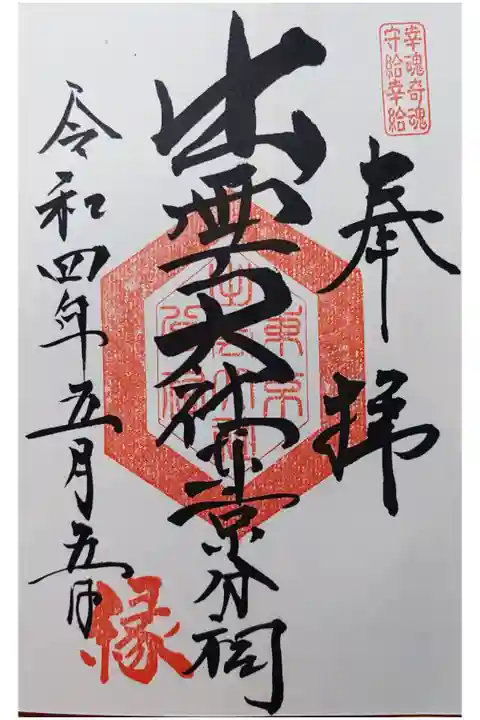 幸魂奇魂
守給幸給
奉拝
出雲大社東京分祠
令和四年五月五日
縁